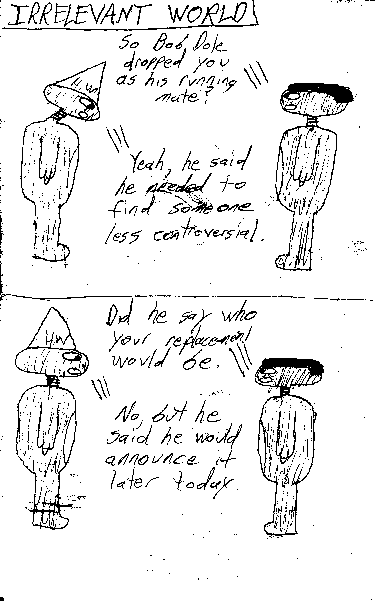 IRRELEVANT WORLD
So Bob Dole
dropped you
as his running
mate?
Yeah, he said
he needed to
find someone
less controversial.
Did he say who
your replacement
would be.
No, but he
said he would
announce it
later today.